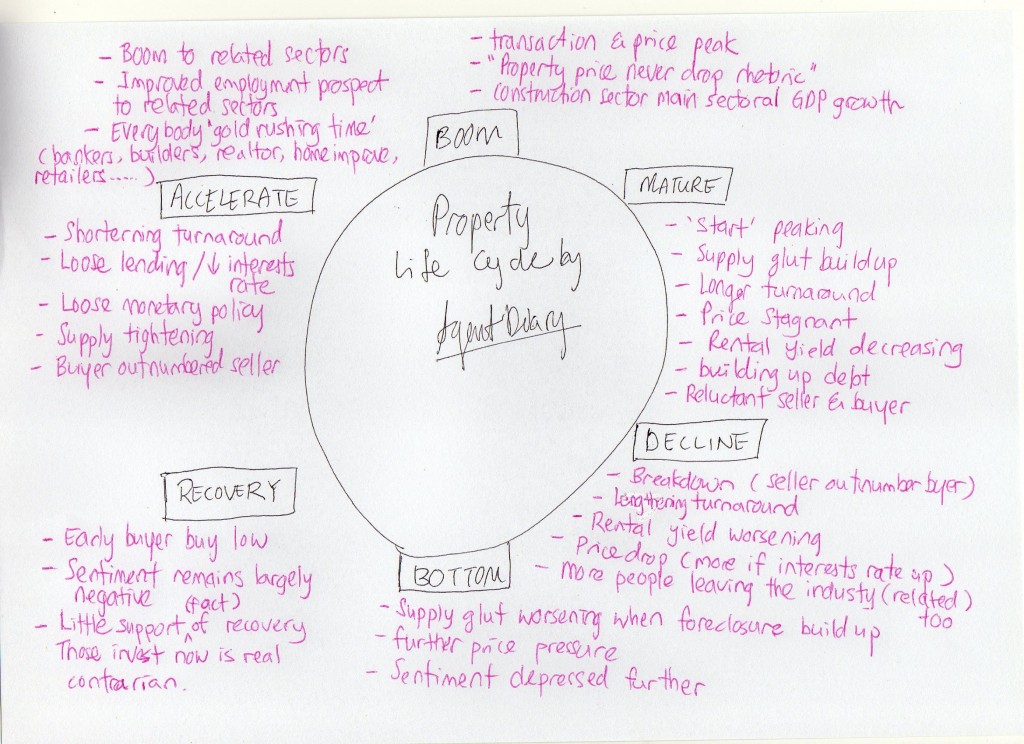 - Boom to related sectors
- Improved employmnt prospect
to related sectors
- Everybody 'gold rushing time'
(bankers, builders, realtor, home improve,
retailers.....)
- transaction & price peak
- "Property price never drop rhetoric"
- construction sector main sectoral GDP growth
BOOM
Property
Life Cycle by
Agent Diary
MATURE
- 'Start' peaking
- Supply glut build up
- Longer turnaround
- Price stagnant
- Rental yield decreasing
- building up debt
- Reluctant seller & buyer
DECLINE
- Breakdown (seller outnumber byer)
- Lengthening turnaround
- Rental yield worsening
- Price drop (more if interests rate up)
- more people leaving the industy (related)
too
BOTTOM
- Supply glut worsening when foreclosure build up
- further price pressure
- Sentiment depressed further
RECOVERY
- Early buyer buy low
- Sentiment remains largely
negative
- Little support (fact) of recovery
- Those invest now is real
contrarian.
ACCELERATE
- Shorterning turnaround
- Loose lending /↓ interests
rate
- Loose monetary policy
- Supply tightening
- Buyer outnumbered seller